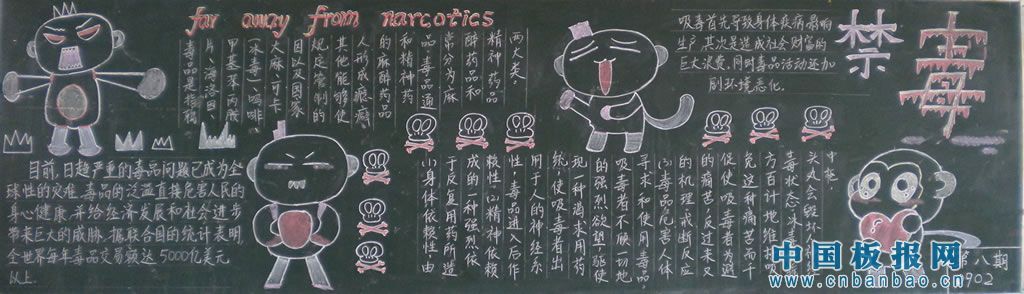 far away from narcotics
毒品是指鸦
片、海洛因、
甲基苯丙胺
(冰毒)、吗啡、
大麻、可卡
因以及国家
规定管制的
其他能够使
人形成瘾癖
的麻醉药品
和精神药
品。毒品通
常分为麻
醉药品和
精神药品
两大类。
吸毒首先导致身体疾病影响
生产,其次是造成社会财富的
巨大浪费,同时毒品活动还加
剧环境恶化。
禁毒
目前,日趋严重的毒品问题已成为全
球性的灾难,毒品的泛滥直接危害人民的
身心健康,并给经济发展和社会进步
带来巨大的威胁。据联合国的统计表明,
全世界每年毒品交易额达5000亿美元
以上。
(1)身体依赖性,由
于反复用药所造
成的一种强烈依
赖性;(2)精神依赖
性,毒品进入后作
用于人的神经系
统,使吸毒者出
现一种渴求用药
的强烈欲望,驱使
吸毒者不顾一切地
寻求和使用毒品。
(3)毒品危害人体
的机理,戒断反应
的痛苦,反过来又
促使吸毒者为避
免这种痛苦而千
方百计地维持吸
毒状态.冰毒
头丸会毁坏
中枢。
第八期
0902
中国板报网
www.cnbanbao.cn